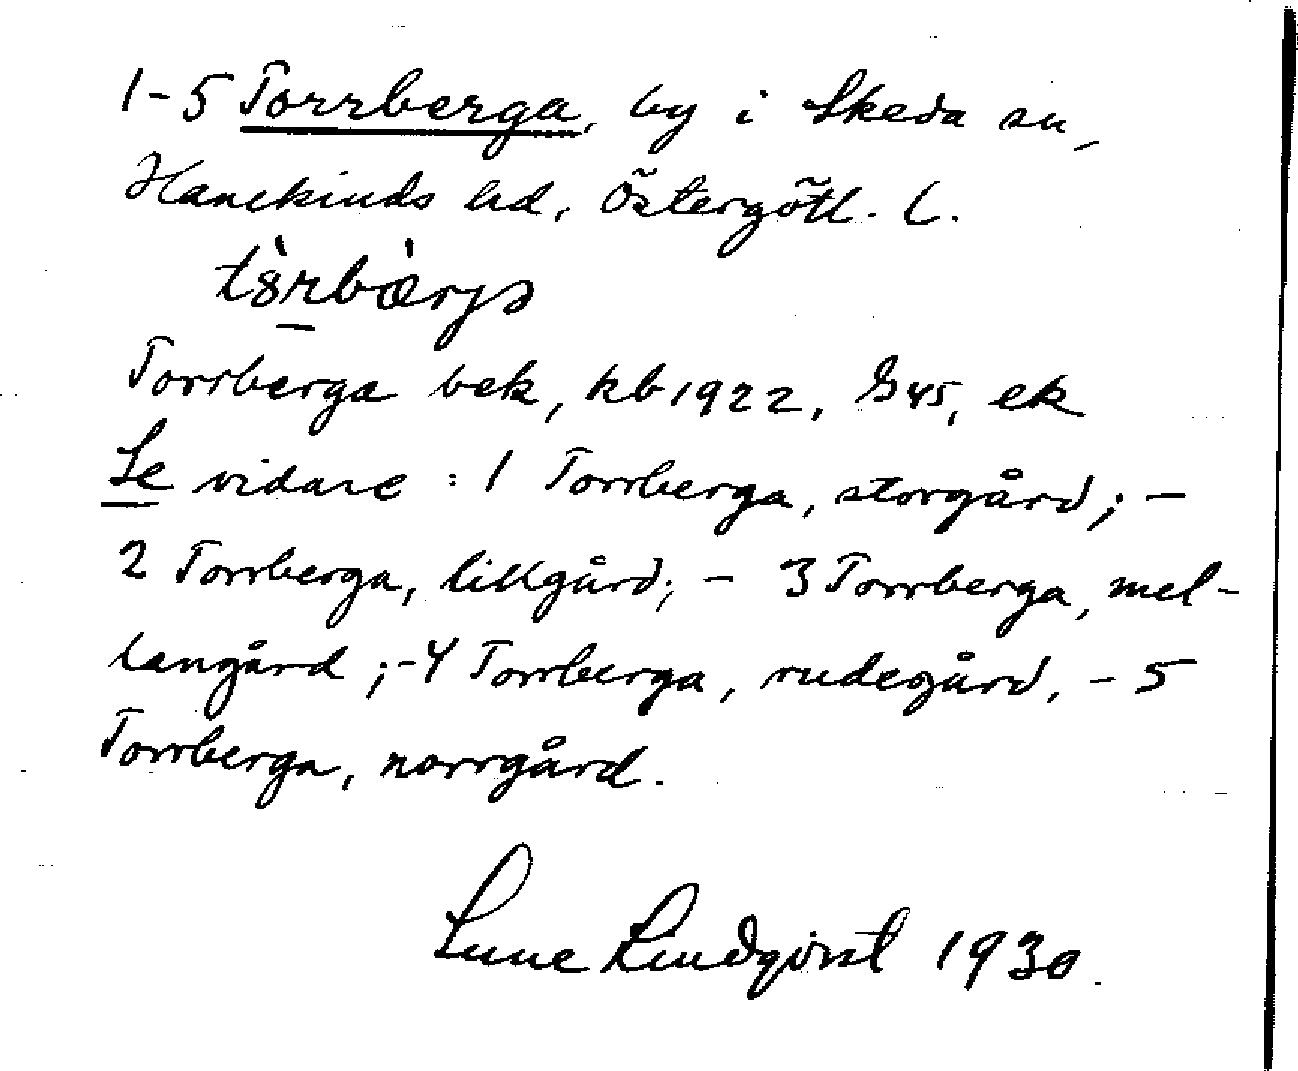 1-5 Torrberga, by i Skeda sn,
Hanekinds hd, Östergötl. l.
Torrberga bek, kb 1922, G45, ek
Se vidare : 1 Torrberga, storgård; -
2 Torrberga, lillgård; - 3 Torrberga, mel-
langård ; -4 Torrberga, rudegård, - 5
Torrberga, norrgård.
Sune Lindqvist 1930.